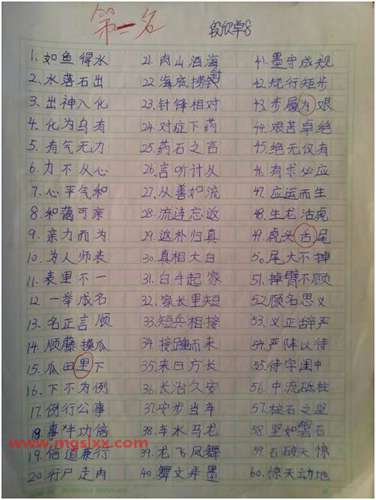 第一名
1. 如鱼得水
2. 水落石出
3. 出神入化
4. 化为乌有
5. 有气无力
6. 力不从心
7. 心平气和
8. 和蔼可亲
9. 亲力而为
10. 为人师表
11. 表里不一
12. 一举成名
13. 名正言顺
14. 顺藤摸瓜
15. 瓜田里下
16. 下不为例
17. 例行公事
18. 事伴功倍
19. 倍道兼行
20. 行尸走肉
21. 肉山酒海
22. 海底捞针
23. 针锋相对
24. 对症下药
25. 药石之言
26. 言听计从
27. 从善如流
28. 流连忘返
29. 返朴归真
30. 真相大白
31. 白手起家
32. 家长里短
33. 短兵相接
34. 接踵而来
35. 来日方长
36. 长治久安
37. 安步当车
38. 车水马龙
39. 龙飞凤舞
40. 舞文弄墨
41. 墨守成规
42. 规行矩步
43. 步履为艰
44. 艰苦卓绝
45. 绝无仅有
46. 有求必应
47. 应运而生
48. 生龙活虎
49. 虎头舌尾
50. 尾大不掉
51. 掉臂不顾
52. 顾名思义
53. 义正辞严
54. 严阵以待
55. 待字闺中
56. 中流砥柱
57. 柱石之坚
58. 坚如磐石
59. 石破天惊
60. 惊天动地
www.mgslxx.com